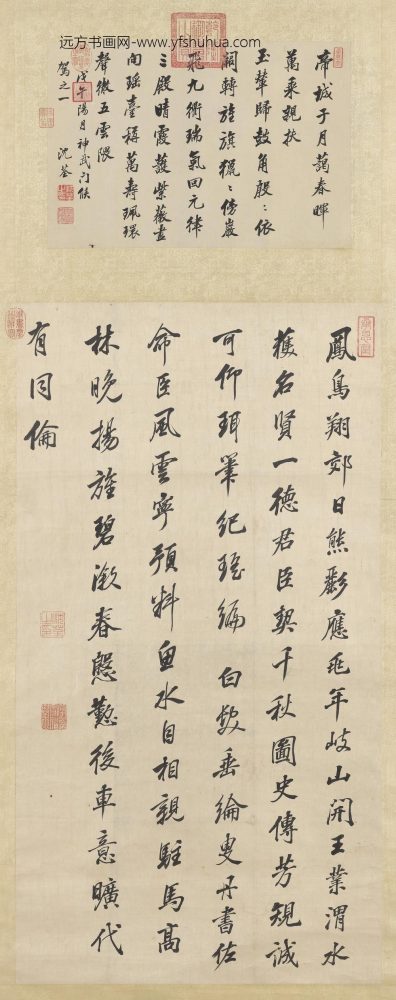 远方书画网--www.yfshuhua.com
帝誠于月藹春暉
萬乘親扶
玉輦歸鼓角殷〻依
祠轉旌旗獵〻傍巖
飛九衢瑞氣回元律
三殿晴霞護紫薇盡
向瑤臺稱萬壽珮環
聲徹五雲隈
戊午陽月神武門候
駕之一 沈荃
鳳鳥翔郊日熊彲應兆年岐山開王業渭水
獲名賢一德君臣契千秋圖史傳芳規誠
可仰珥筆紀瑤編 白髮垂綸叟丹書佐
命臣風雲寧預料魚水自相親駐馬高
林晚揚旌碧漵春慇懃後車意曠代
有同倫